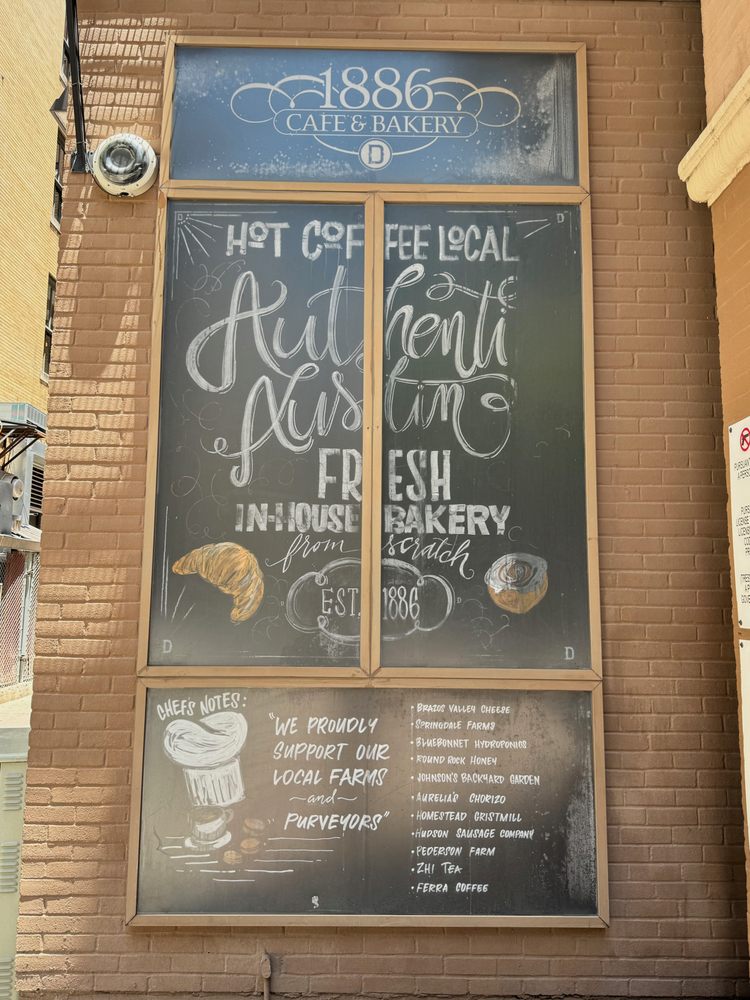 1886
CAFE & BAKERY
D
HOT COFFEE LOCAL
Authentic
Austin
FRESH
IN-HOUSE BAKERY
from scratch
EST. 1886
D
D
D
D
CHEFS NOTES:
"WE PROUDLY
SUPPORT OUR
LOCAL FARMS
~and~
PURVEYORS"
• BRAZOS VALLEY CHEESE
• SPRINGDALE FARMS
• BLUEBONNET HYDROPONICS
• ROUND ROCK HONEY
• JOHNSON'S BACKYARD GARDEN
• AURELIA'S CHORIZO
• HOMESTEAD GRISTMILL
• HUDSON SAUSAGE COMPANY
• PEDERSON FARM
• ZHI TEA
• FERRA COFFEE